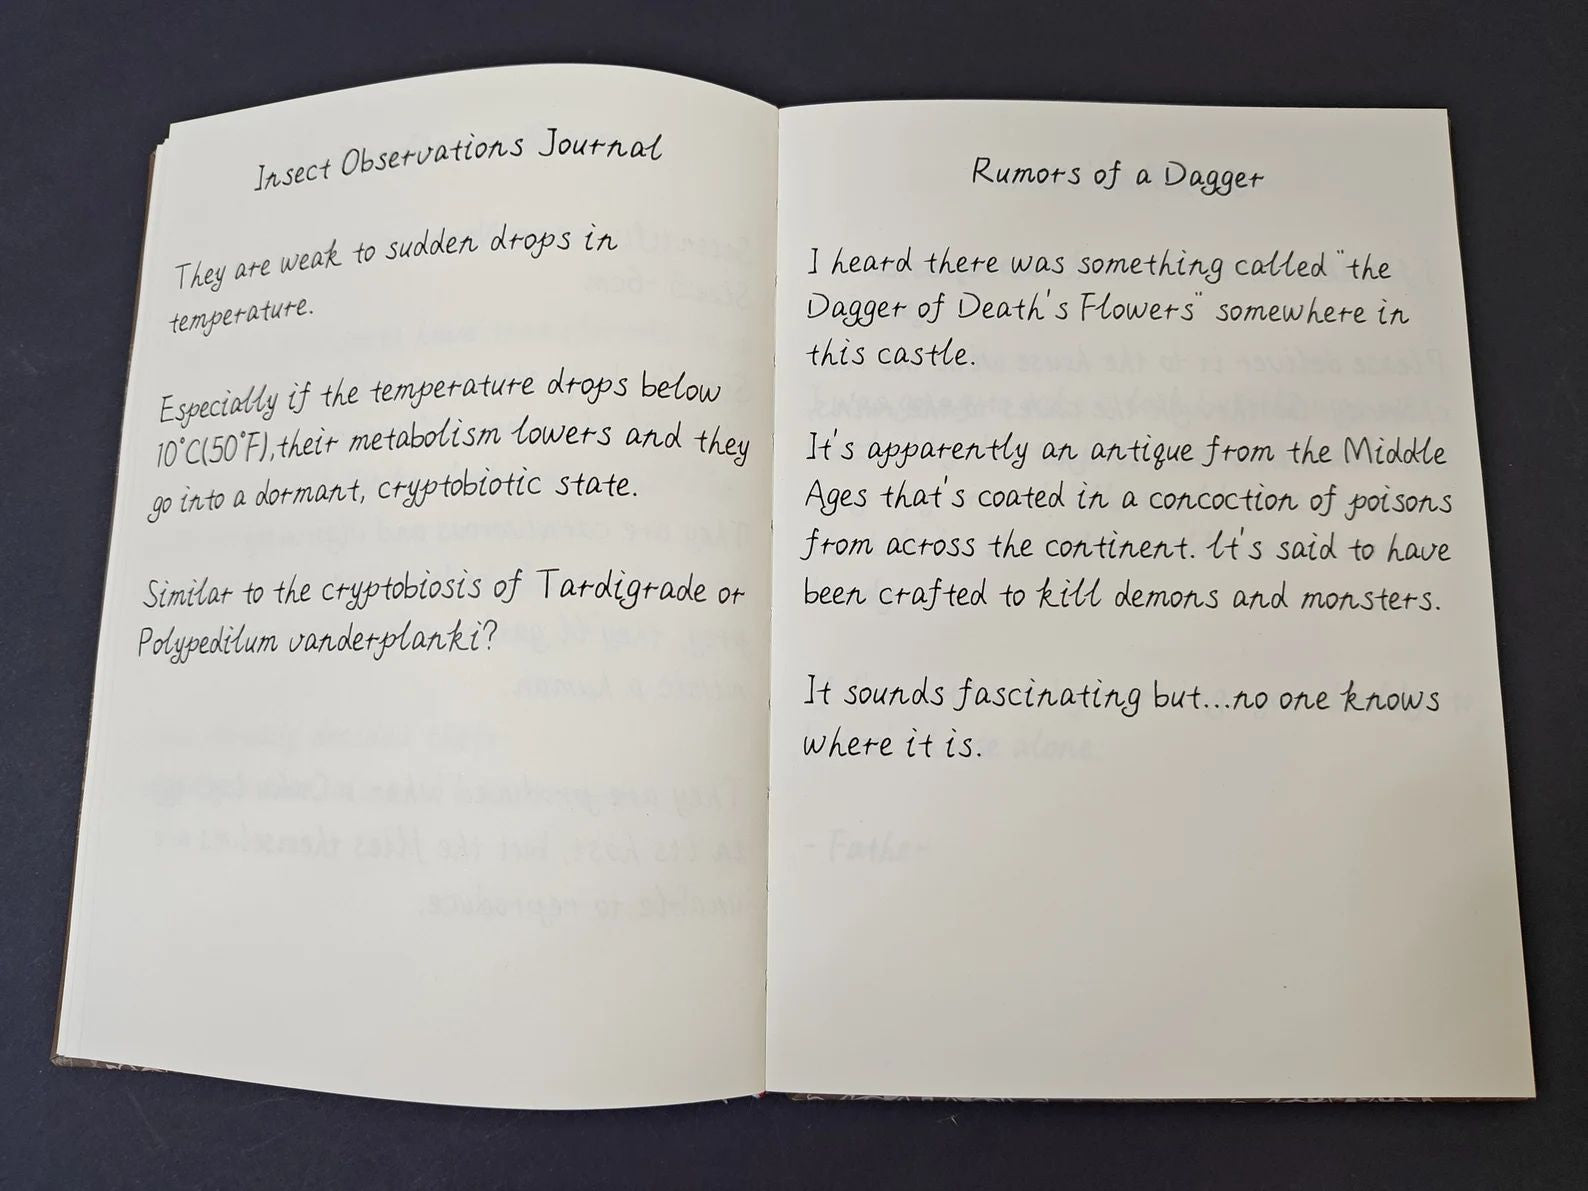 Insect Observations Journal
They are weak to sudden drops in
temperature.
Especially if the temperature drops below
10°C(50°F), their metabolism lowers and they
go into a dormant, cryptobiotic state.
Similar to the cryptobiosis of Tardigrade or
Polypedilum vanderplanki?
Rumors of a Dagger
I heard there was something called "the
Dagger of Death's Flowers" somewhere in
this castle.
It's apparently an antique from the Middle
Ages that's coated in a concoction of poisons
from across the continent. It's said to have
been crafted to kill demons and monsters.
It sounds fascinating but...no one knows
where it is.